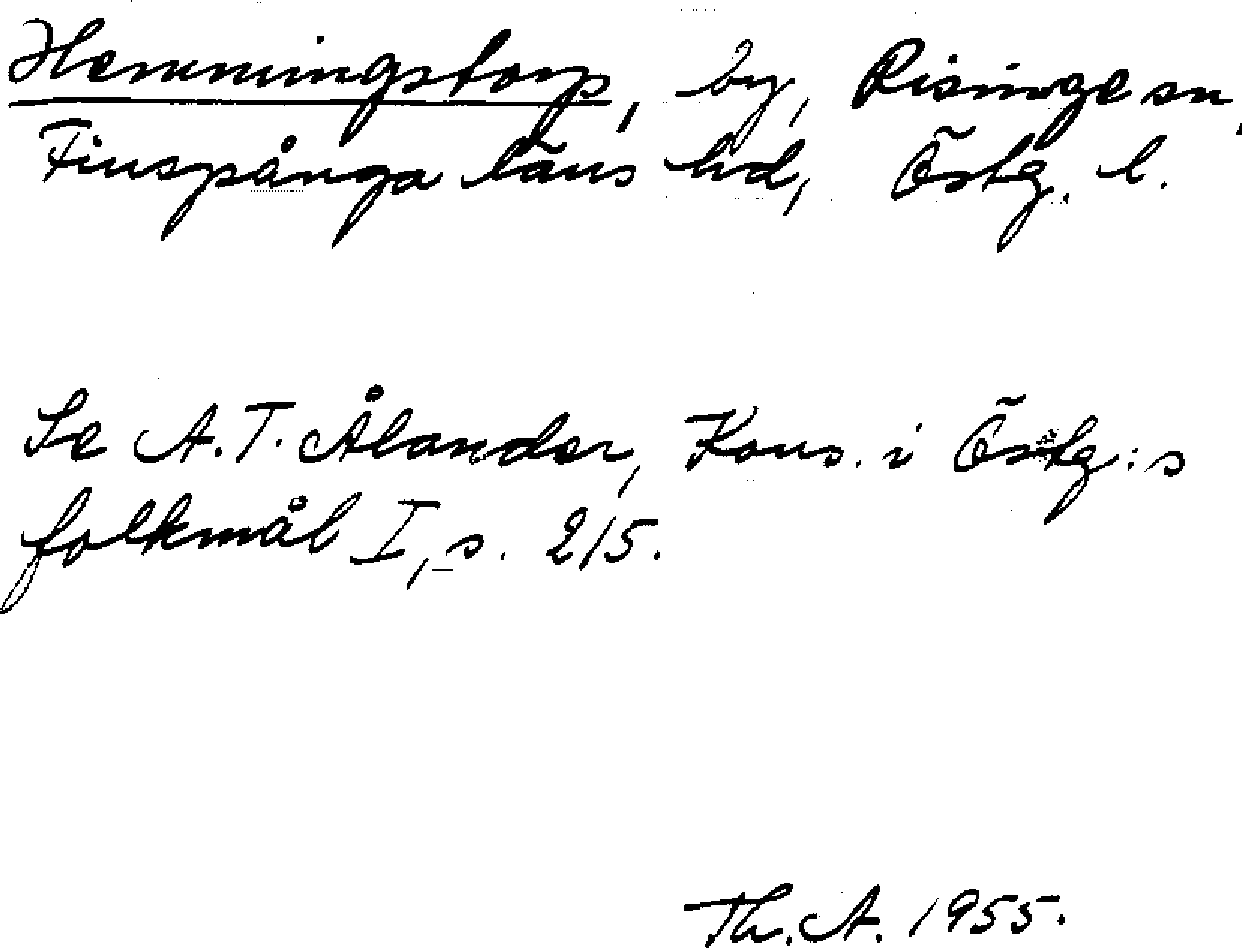 Hemmingstorp, by, Risinge sn,
Finspånga läns hd, Östg. l.
Se A.T. Ålander, Kons. i Östg:s
folkmål I, s. 215.
Th. A. 1955.